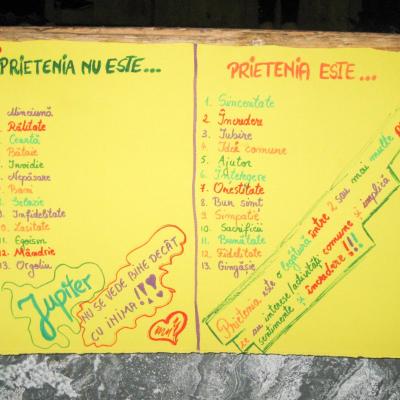 PRIETENIA NU ESTE...
Minciună
Răutate
Ceartă
Bătaie
Invidie
Nepăsare
Bani
Gelozie
Infidelitate
Lașitate
11. Egoism
12. Mândrie
13. Orgoliu
Jupiter
NU SE VEDE BINE DECÂT
CU INIMA!!!
PRIETENIA ESTE...
1. Sinceritate
2. Încredere
3. Iubire
4. Idei comune
5. Ajutor
6. Înțelegere
7. Onestitate
8. Bun simt
9. Simpatie
10. Sacrificii
11. Bunătate
12. Fidelitate
13. Gingășie
Prietenia este o legătură între 2 sau mai multe
ce au interese/activități comune și implică
sentimente și încredere!!!